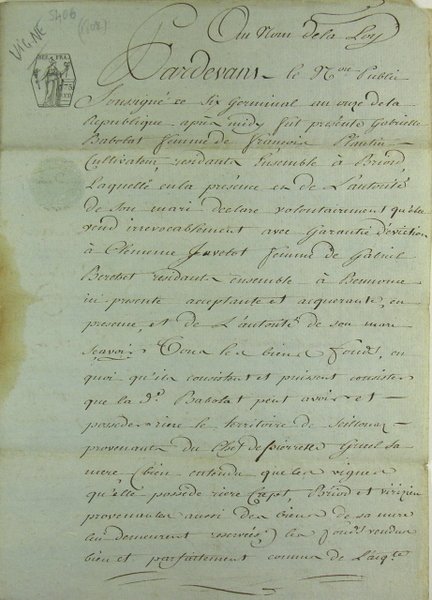 VIGNE 5406
(108)
REP. FRA.
Au Nom de la Loy
Pardevant le Nore Public
Soussigné ce Six Germinal an onze de la
Republique apres midy fut présente Gabrielle
Babolat femme de francois Plantin
Cultivateur residants Ensemble à Briord
Laquelle en la présence et de L'autorité
de Son mari declare volontairement qu'elle
vend irrevocablement avec Garantie d'eviction
à Clemence Juvetot femme de Gabriel
Berchet residants ensemble à
ici presente acceptante et acquerante, en
presence et de L'autorité de son mari
Scavoir Tous les biens fonds, en
quoi qu'ils consistent et puissent consister
que la de. Babolat peut avoir et
posseder riere le territoire de
provenants du Chef de pierrette sa
mere (bien entendu que les vignes
qu'elle possede riere Crept, Briord et
provenantes aussi des biens de sa mere
lui demeurent reservées) les fonds vendus
bien et parfaitement connus de L'acqte